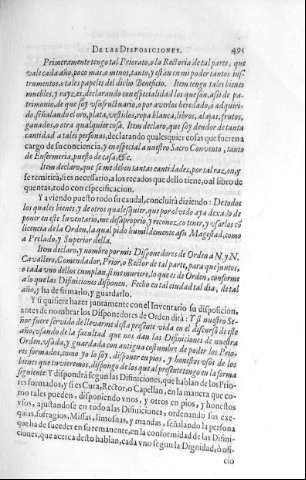 DE LAS DISPOSICIONES. 491
Primeramente tengo tal Priorato, o la Rectoria de tal parte, que
vale cada año, poco mas, o menos, tanto, y estan en mi poder tantos ins-
trumentos, o tales papeles del dicho Beneficio. Item tengo tales bienes
muebles, y rayzes, declarando con especialidad los que son, assi de pa-
trimonio, de que soy vsufructuario, o por averlos heredado, o adquiri-
do, señalando el oro, plata, vestidos, ropa blanca, libros, alajas, frutos,
ganados, o otra qualquier cosa. Item declaro, que soy deudor de tanta
cantidad a tales personas, declarando qualquier cosa que fuere a
cargo de su conciencia, y en especial a nuestro Sacro Convento, tanto
de Enfermeria, puesto de casa, &c.
Item declaro, que se me deben tantas cantidades, por tal razon, y
se remitirà, si es necessario, a los recados que dello tiene, o al libro de
quentas, todo con especificacion.
Y aviendo puesto todo su caudal, concluirà diziendo: De todos
los quales bienes, y de otros qualesquier, que por olvido aya dexado de
poner en este Inventario, me desapropio, y reconozco tener, y vsarlos cõ
licencia de la Orden, la qual pido humildemente a su Magestad, como
a Prelado, y Superior della.
Item declaro, y nombro por mis Disponedores de Orden a N. y N.
Cavallero, Comendador, Prior, o Rector de tal parte, para que juntos,
o cada vno dellos cumplan, si me muriere, lo que es de Orden, conforme
a lo que las Difiniciones disponen. Fecho en tal ciudad tal dia, de tal
año, y ha de firmarlo, y guardarlo.
Y si quiere hazer juntamente con el Inventario su disposicion,
antes de nombrar los Disponedores de Orden dirà: Y si nuestro Se-
ñor fuere servido de llevarme desta presente vida en el discurso deste
año, vsando de la facultad que nos dan las Difiniciones de nuestra
Orden, vsada, y guardada con antigua costumbre de poder los Prio-
res formados, como yo lo soy, disponer en pios, y honestos vsos de los
bienes que tuvieremos, dispongo de los que al presente tengo en la forma
siguiente: Y dispondrà segun las Difiniciones, que hablan de los Prio-
res formados, y si es Cura, Rector, o Capellan, en la manera que co-
mo tales pueden, disponiendo vnos, y otros en pios, y honestos
vsos, ajustandose en todo a las Difiniciones, ordenando sus exe-
quias, sufragios, Missas, limosnas, y mandas, señalando la persona
que ha de suceder en su remanente, en la conformidad de las Difini-
ciones, que acerca desto hablan, cada vno segun la Dignidad, ò ofi-
cio